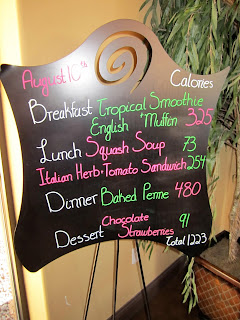 August 10th
Calories
Breakfast Tropical Smoothie
English Muffin 325
Lunch Squash Soup 73
Italian Herb·Tomato Sandwich 254
Dinner Baked Penne 480
Chocolate
Dessert Strawberries 91
Total 1223